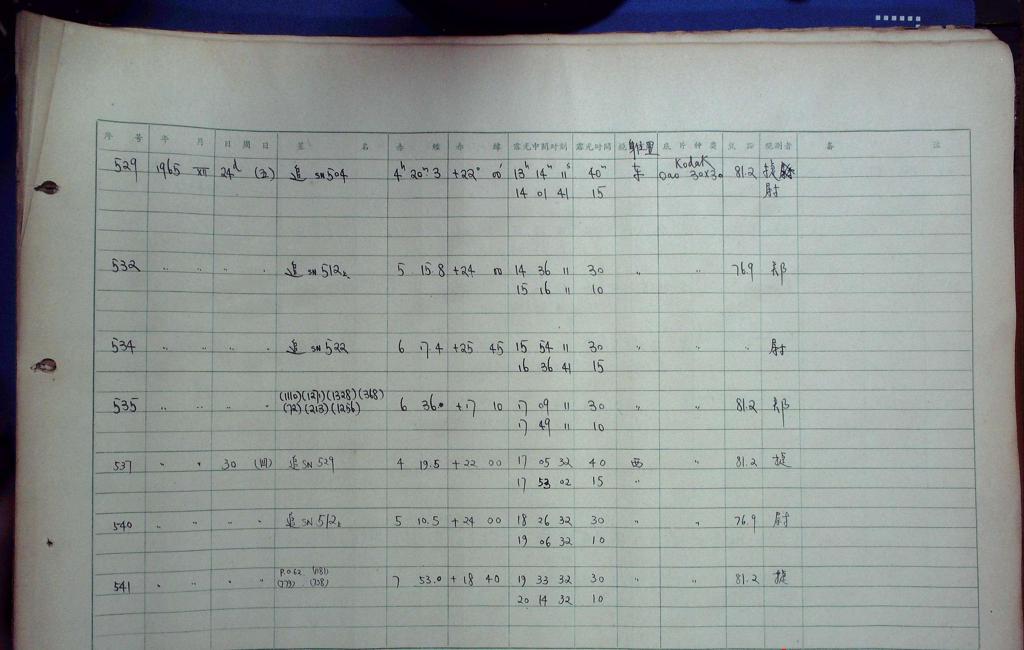 序 号 年 月 日 周 日 星 名 赤 經 赤 緯 露光中間时刻 露光时间 鏡身位置 底 片 种 类 焦 距 覌測者 备 注
529 1965 XII 24d (五) 追 SN504 4h 20m 3 +22° 00' 13h 14m 11s 40m 东 Kodak Oao 30x30 81.2
14 01 41 15 尉
532 " " " " 追 SN 512 5 15.8 +24 00 14 36 11 30 " " 76.9 郑
15 16 11 10
534 " " " " 追 SN 522 6 17.4 +25 45 15 54 11 30 " " " 尉
16 36 41 15
535 " " " " (1110)(1271)(1328)(368) 6 36.0 +17 10 17 09 11 30 " " 81.2 郑
(72)(213)(1256) 17 49 11 10
537 " " 30 (四) 追 SN 529 4 19.5 +22 00 17 05 32 40 西 " 81.2 捷
17 53 02 15 "
540 " " " " 追 SN 512 5 10.5 +24 00 18 26 32 30 " " 76.9 尉
19 06 32 10
541 " " " " P.O 62 (181) 7 53.0 +18 40 19 33 32 30 " " 81.2 捷
20 14 32 10